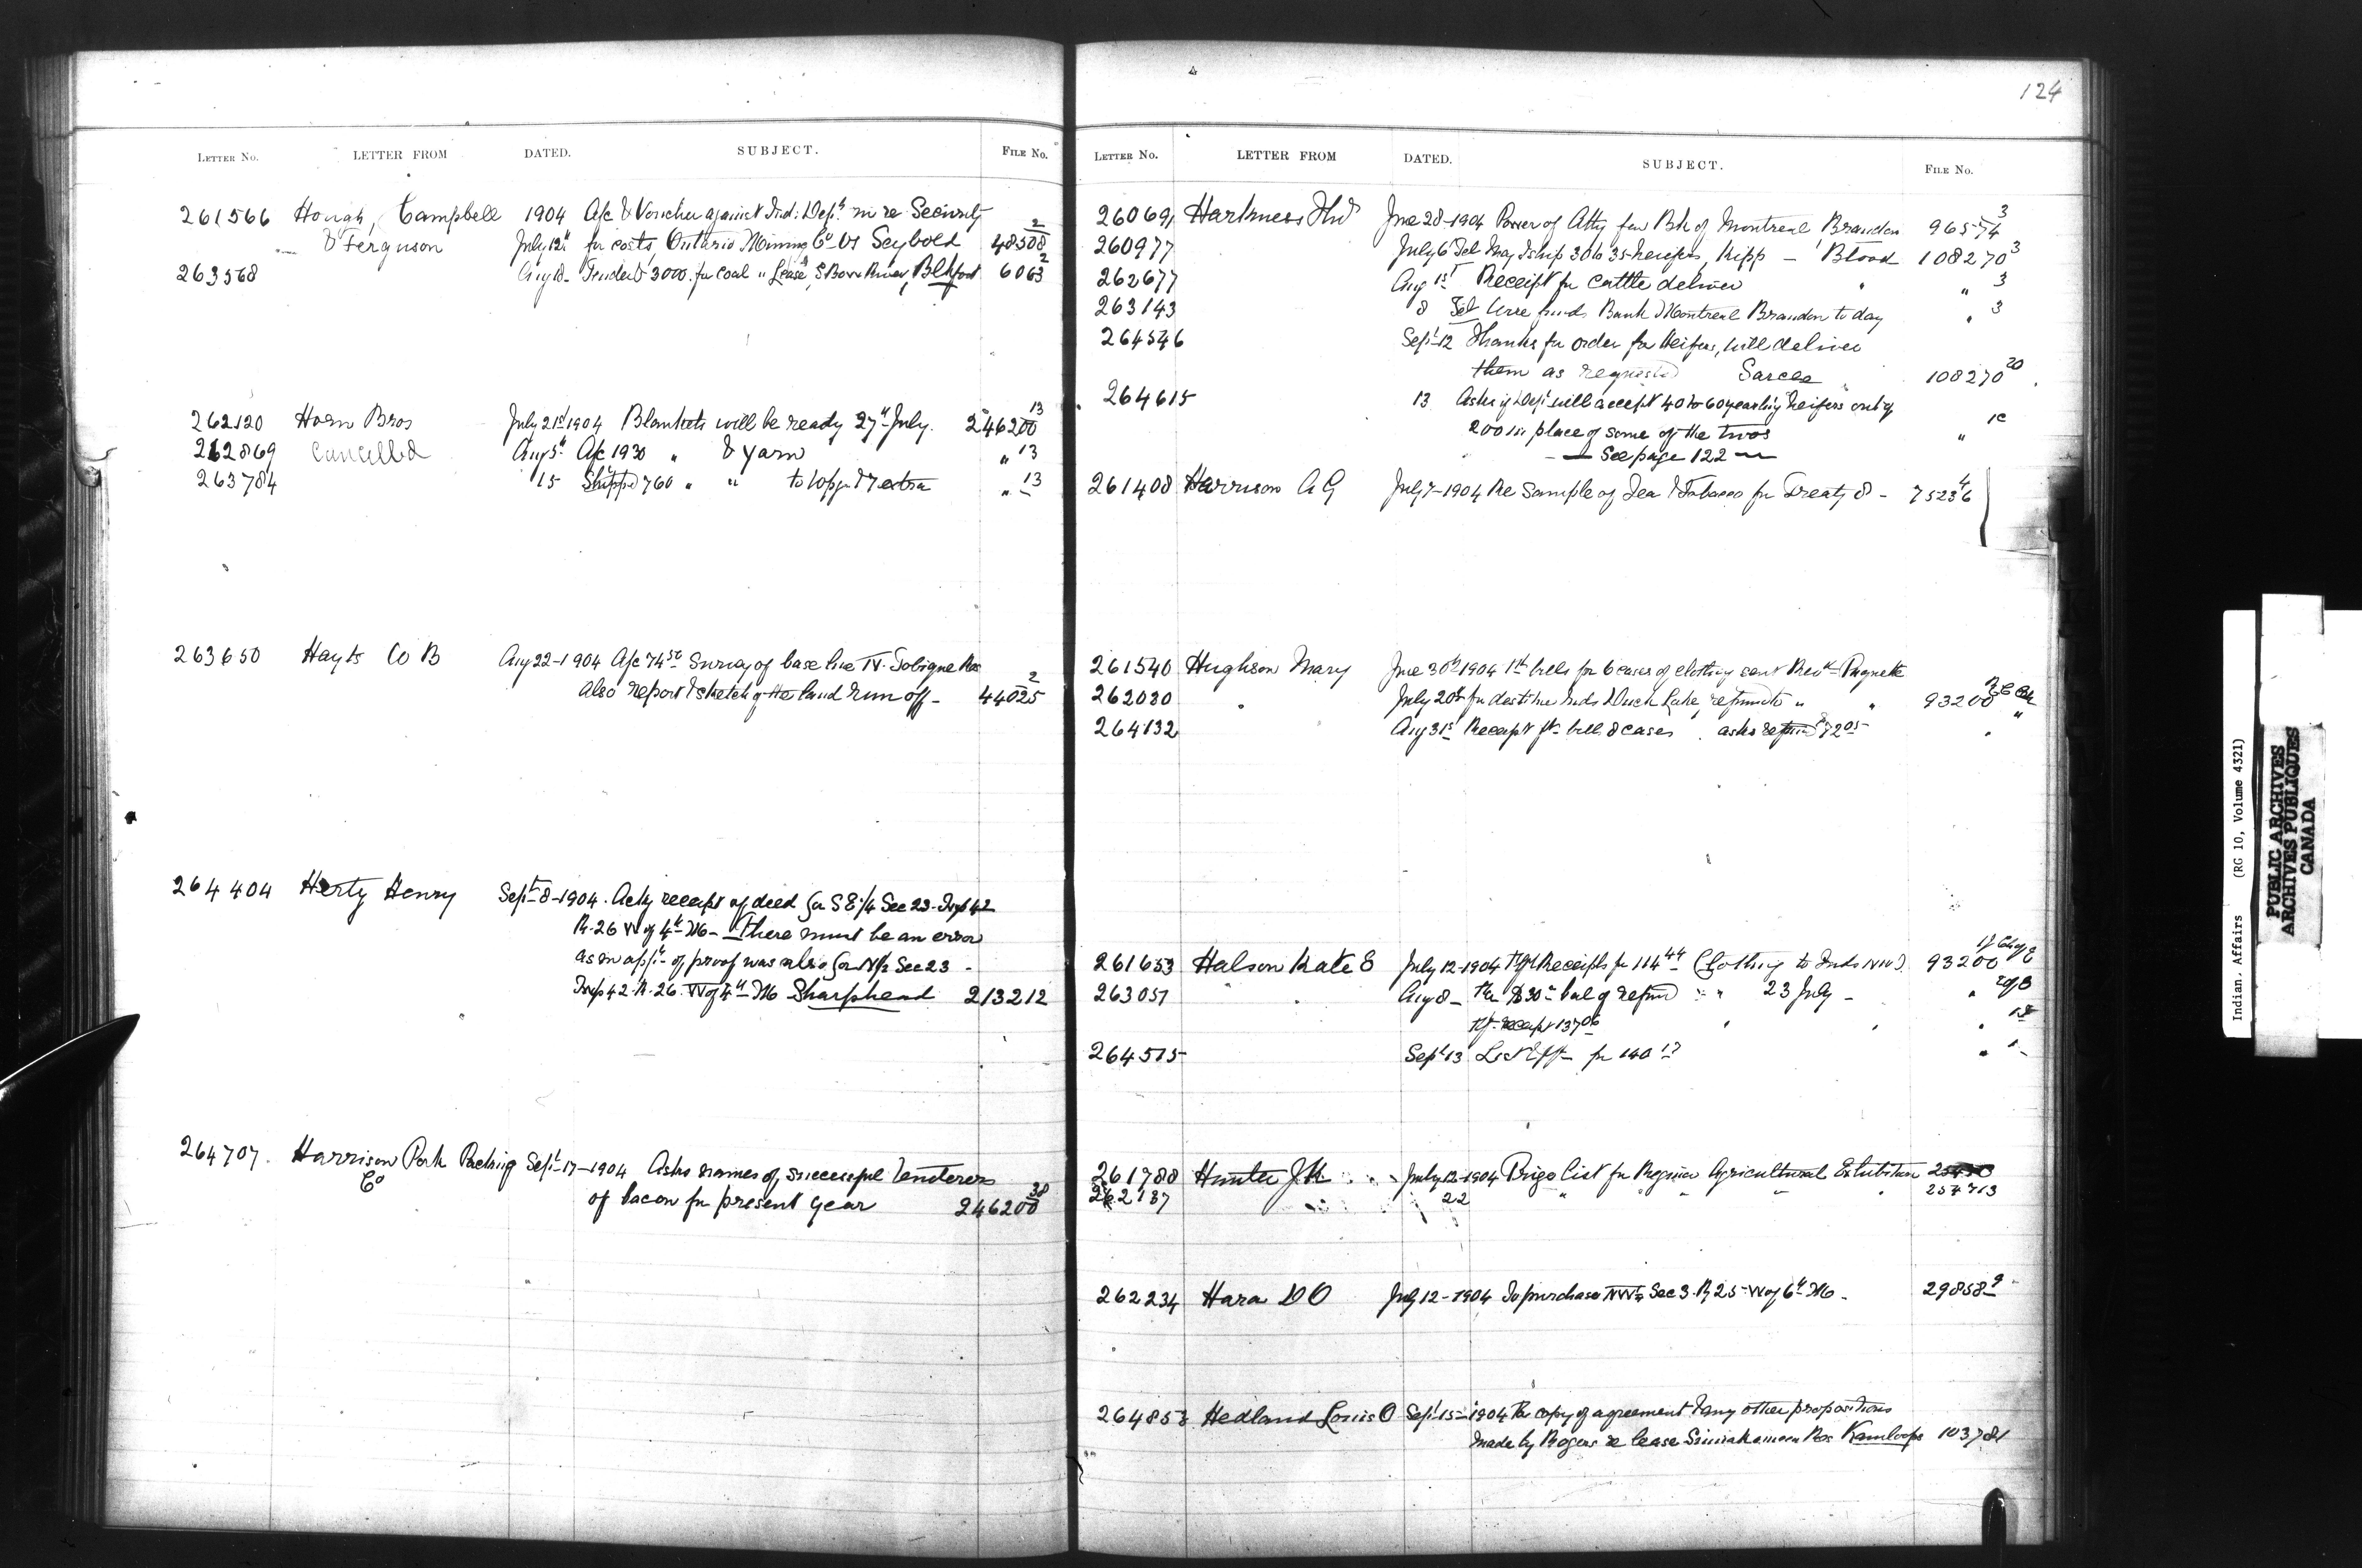 LETTER NO. LETTER FROM DATED. SUBJECT. FILE No.
261566 Hough, Campbell 1904 A/c & Voucher against Ind: Dept. in re Security
& Ferguson July 12th for costs, Ontario Mining Co vs Seybold 48508 2
263568 Aug 18 Tenders 3000. for coal Lease, S Bow River, Blkfoot 6063 2
262120 Horn Bros July 21st 1904 Blankets will be ready 27th July. 246200 13
262869 Cancelled Aug 5th A/c 1930 " & yarn " 13
263784 15 Shipped 760 " " to Wpg & 7 extra " 13
263650 Hayts W B Aug 22-1904 A/c 74 50 Survey of base line IV. Tobique Res
Also report & sketch of the land run off - 44025 2
264404 Herty Henry Sept 8-1904. Ackg receipt of deed for S E 1/4 Sec 23-Twp 42
R. 26 W of 4th M - There must be an error
as on of proof was also for N 1/2 Sec 23 -
Twp 42. R. 26. W of 4th M Sharphead 213212
264707. Harrison Pork Packing Sept 17-1904 Asks names of successful tenderers
Co of bacon for present year 246200 38
124
LETTER No. LETTER FROM DATED. SUBJECT. FILE No.
260691 Harkness June 28-1904 Power of Atty for Bk of Montreal Brandon 96574 3
260977 July 6 Tel May I ship 30 to 35 heifers, Kipp - Blood 108270 3
262677 Aug 1st Receipt for cattle deliver " " 3
263143 8 Tel Wire funds Bank Montreal Brandon to day " 3
264546 Sept 12 Thanks for order for Heifers, will deliver
them as requested Sarcee 108270 20
264615 13 Asks if Dept will accept 40 to 60 yearling heifers out of
200 in place of some of the twos "
— See page 122 —
261408 Harrison A G July 7-1904 Re Sample of Tea & Tobacco for Treaty 8 - 75236 4
261540 Hughson Mary June 30th 1904 bills for 6 cases of clothing sent Revd Paquette
262080 " July 20th for destitute Inds Duck Lake, refund to " " 93200
264132 Aug 31st Receipt frt bill 8 cases. asks refund $7205 "
261653 Halson Kate E July 12-1904 Receipts for 114 44 Clothing to Inds NW 93200
263051 " " Aug 8 - $30 bal of refund " " 23 July - "
receipt 13706 " " "
264515 Sept 13 for 140 "
261788 Hunter J K July 12-1904 Prize list for Regina Agricultural Exhibition
262187 22 " " " " 254713
262234 Hara D O July 12-1904 To purchase NW 1/4 Sec 3. R 25 W of 6th M - 29858 9
264853 Hedland Louis O Sept 15-1904 For copy of agreement & any other propositions
made by Rogers re lease Similkameen Res Kamloops 103781
Indian Affairs (RG 10, Volume 4321)
PUBLIC ARCHIVES
ARCHIVES PUBLIQUES
CANADA